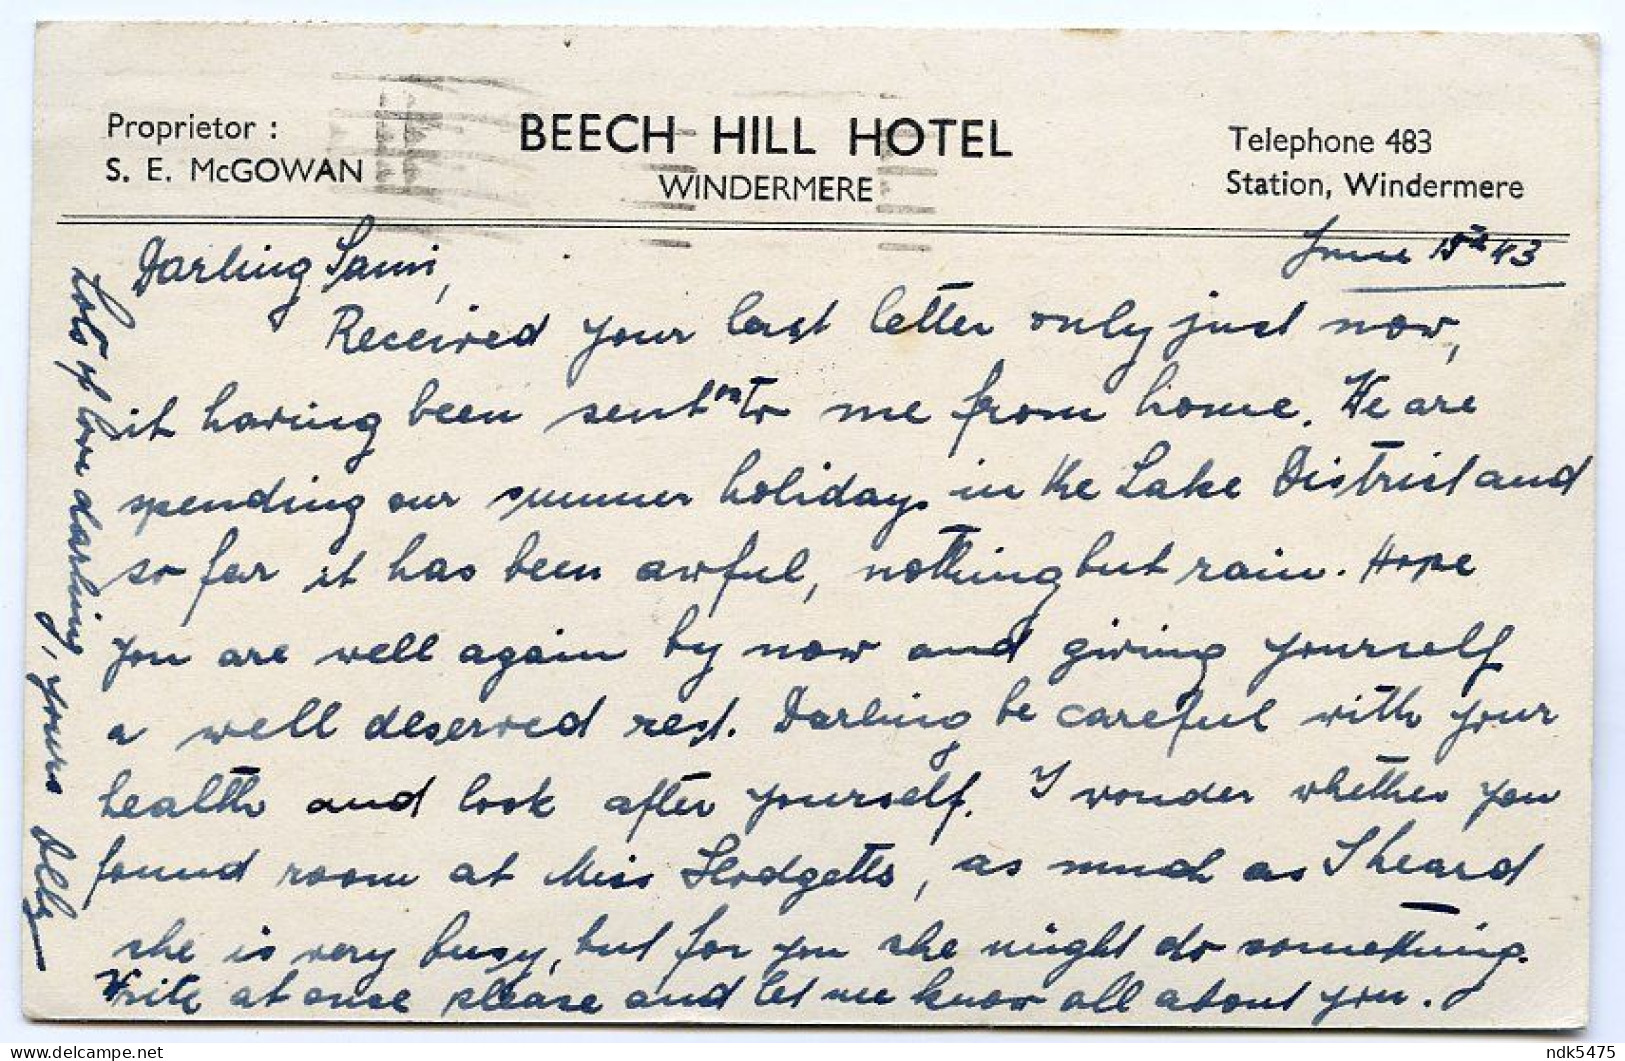 Proprietor :
S. E. McGOWAN
BEECH HILL HOTEL
WINDERMERE
Telephone 483
Station, Windermere
June 15th 43
Darling Sami,
Received your last letter only just now,
it having been sent on to me from home. We are
spending our summer holidays in the Lake District and
so far it has been awful, nothing but rain. Hope
you are well again by now and giving yourself
a well deserved rest. Darling be careful with your
health and look after yourself. I wonder whether you
found room at Miss Hodgetts, as much as I heard
she is very busy, but for you she might do something.
Write at once please and let me know all about you.
Lots of love darling, yours
delcampe.net
ndk5475